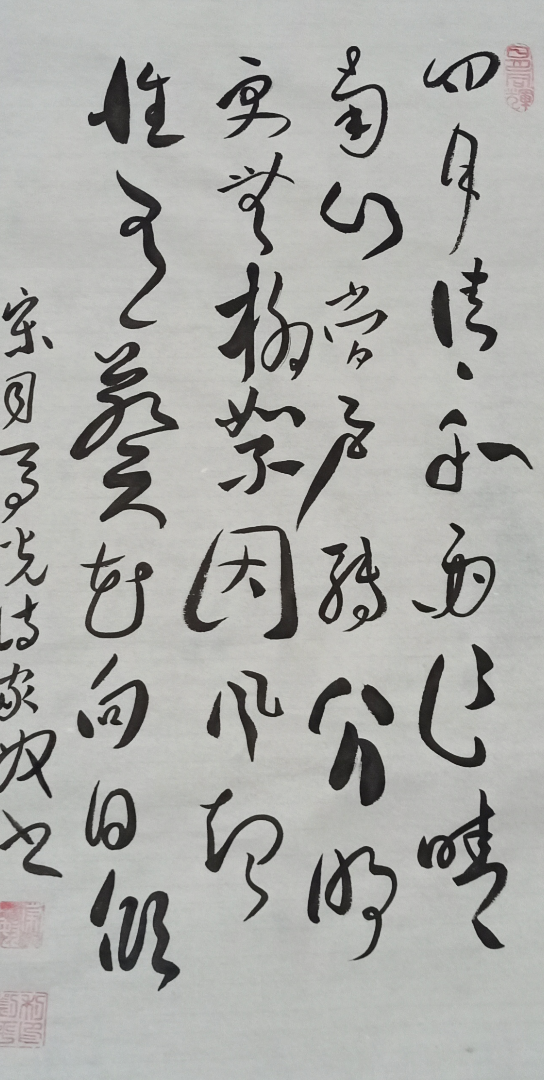 四月清和雨乍晴
南山当户转分明
更无柳絮因风起
惟有葵花向日倾
宋司马光诗家成书